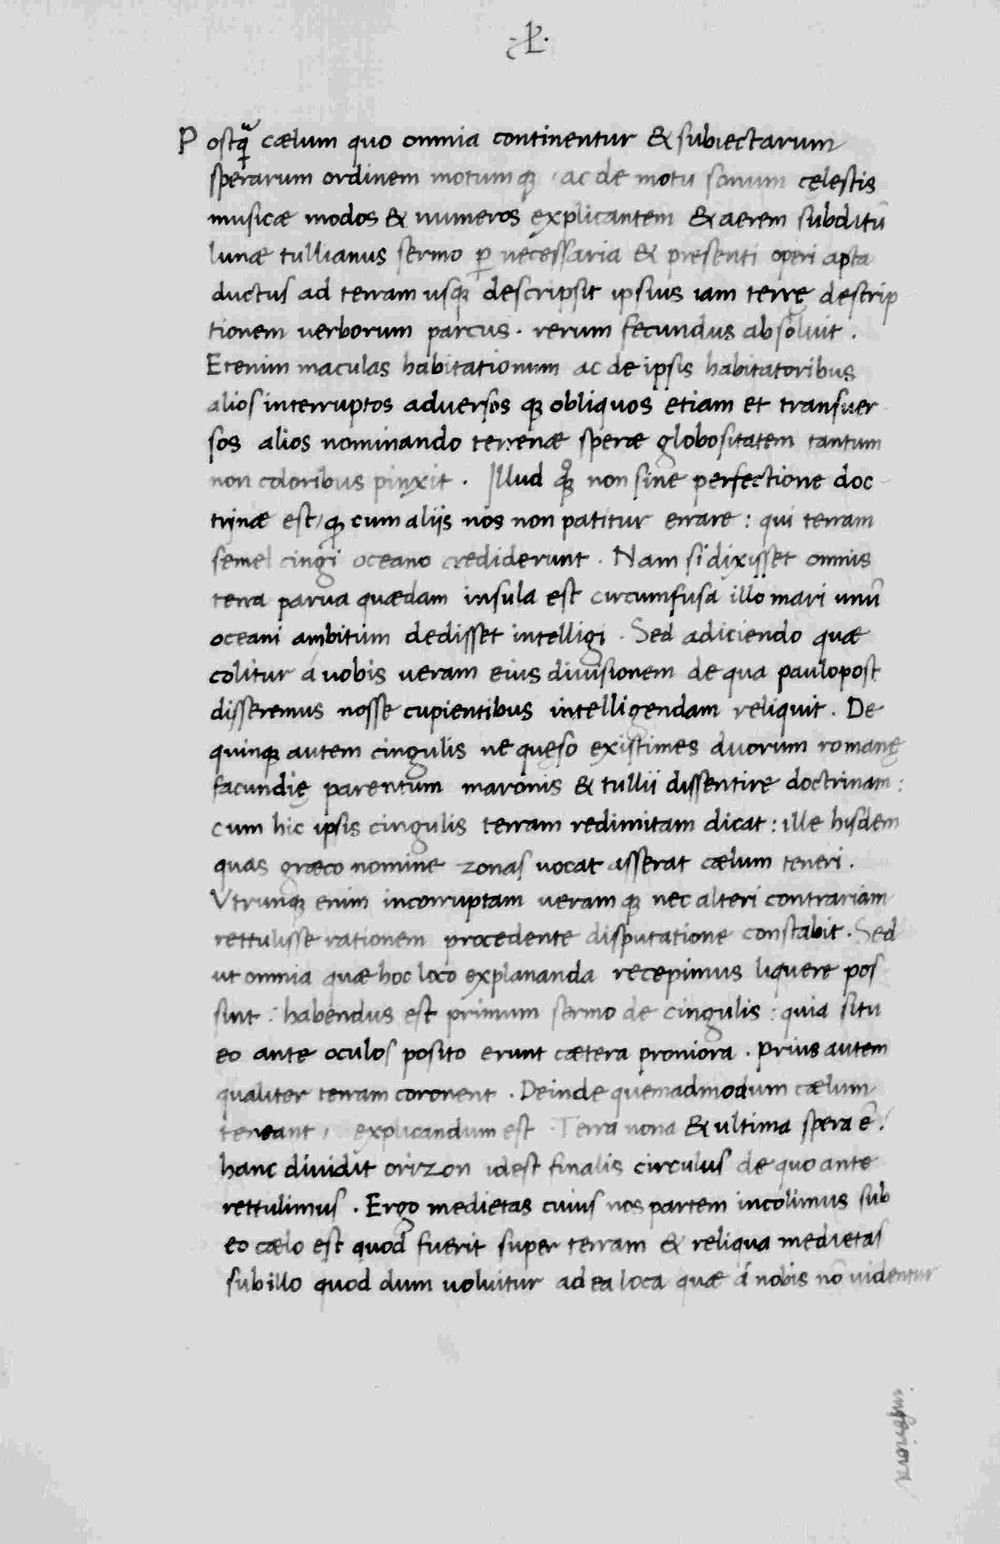 Postq̃ cælum quo omnia continentur & subiectarum
sperarum ordinem motumq; ac de motu sonum cęlestis
musicæ modos & numeros explicantem & aerem subditũ
lunæ tullianus sermo ꝑ necessaria & presenti operi apta
ductus ad terram usq; descripsit ipsius iam terrę descrip
tionem verborum parcus · rerum fecundus absoluit .
Etenim maculas habitationum ac de ipsis habitatoribus
alios interruptos adversos q; obliquos etiam et transuer
sos alios nominando terrenæ speræ globositatem tantum
non coloribus pinxit . Illud q̊; non sine perfectione doc
trinæ est, q; cum aliis nos non patitur errare : qui terram
semel cingi oceano crediderunt . Nam si dixisset omnis
terra parva quædam insula est circumfusa illo mari unũ
oceani ambitum dedisset intelligi . Sed adiciendo quæ
colitur á vobis veram eius divisionem de qua paulopost
disseremus nosse cupientibus intelligendam reliquit . De
quinq; autem cingulis ne quęso existimes duorum romanę
facundię parentum maronis & tullii dissentire doctrinam :
cum hic ipsis cingulis terram redimitam dicat : ille hisdem
quas græco nomine zonas vocat asserat cælum teneri .
Vtrunq; enim incorruptam veram q; nec alteri contrariam
rettulisse rationem procedente disputatione constabit . Sed
ut omnia quæ hoc loco explananda recepimus liquere pos
sint : habendus est primum sermo de cingulis : quia situ
eo ante oculos posito erunt cætera proniora . prius autem
qualiter terram coronent . Deinde quemadmodum cælum
teneant , explicandum est . Terra nona & ultima spera ē .
hanc dividit orizon idest finalis circulus de quo ante
rettulimus . Ergo medietas cuius nos partem incolimus sub
eo cælo est quod fuerit super terram & reliqua medietas
sub illo quod dum voluitur ad ea loca quæ á nobis nõ videntur